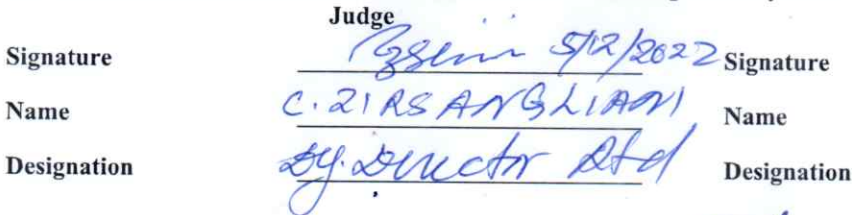 Judge
Signature 5/12/2022 Signature
Name C. ZIRSANGLIANI Name
Designation Dy. Director Rtd Designation